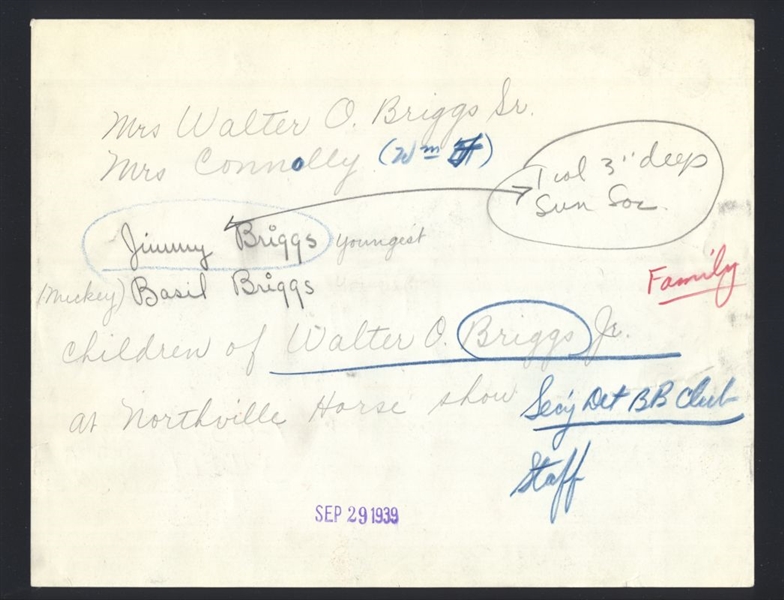 Mrs Walter O. Briggs Sr.
Mrs Connolly (Wm)
1 col 3" deep
Sun Soc.
Jimmy Briggs youngest
(Mickey) Basil Briggs
Family
children of Walter O. Briggs Jr.
at Northville Horse show Sec'y Det BB Club
Staff
SEP 29 1939